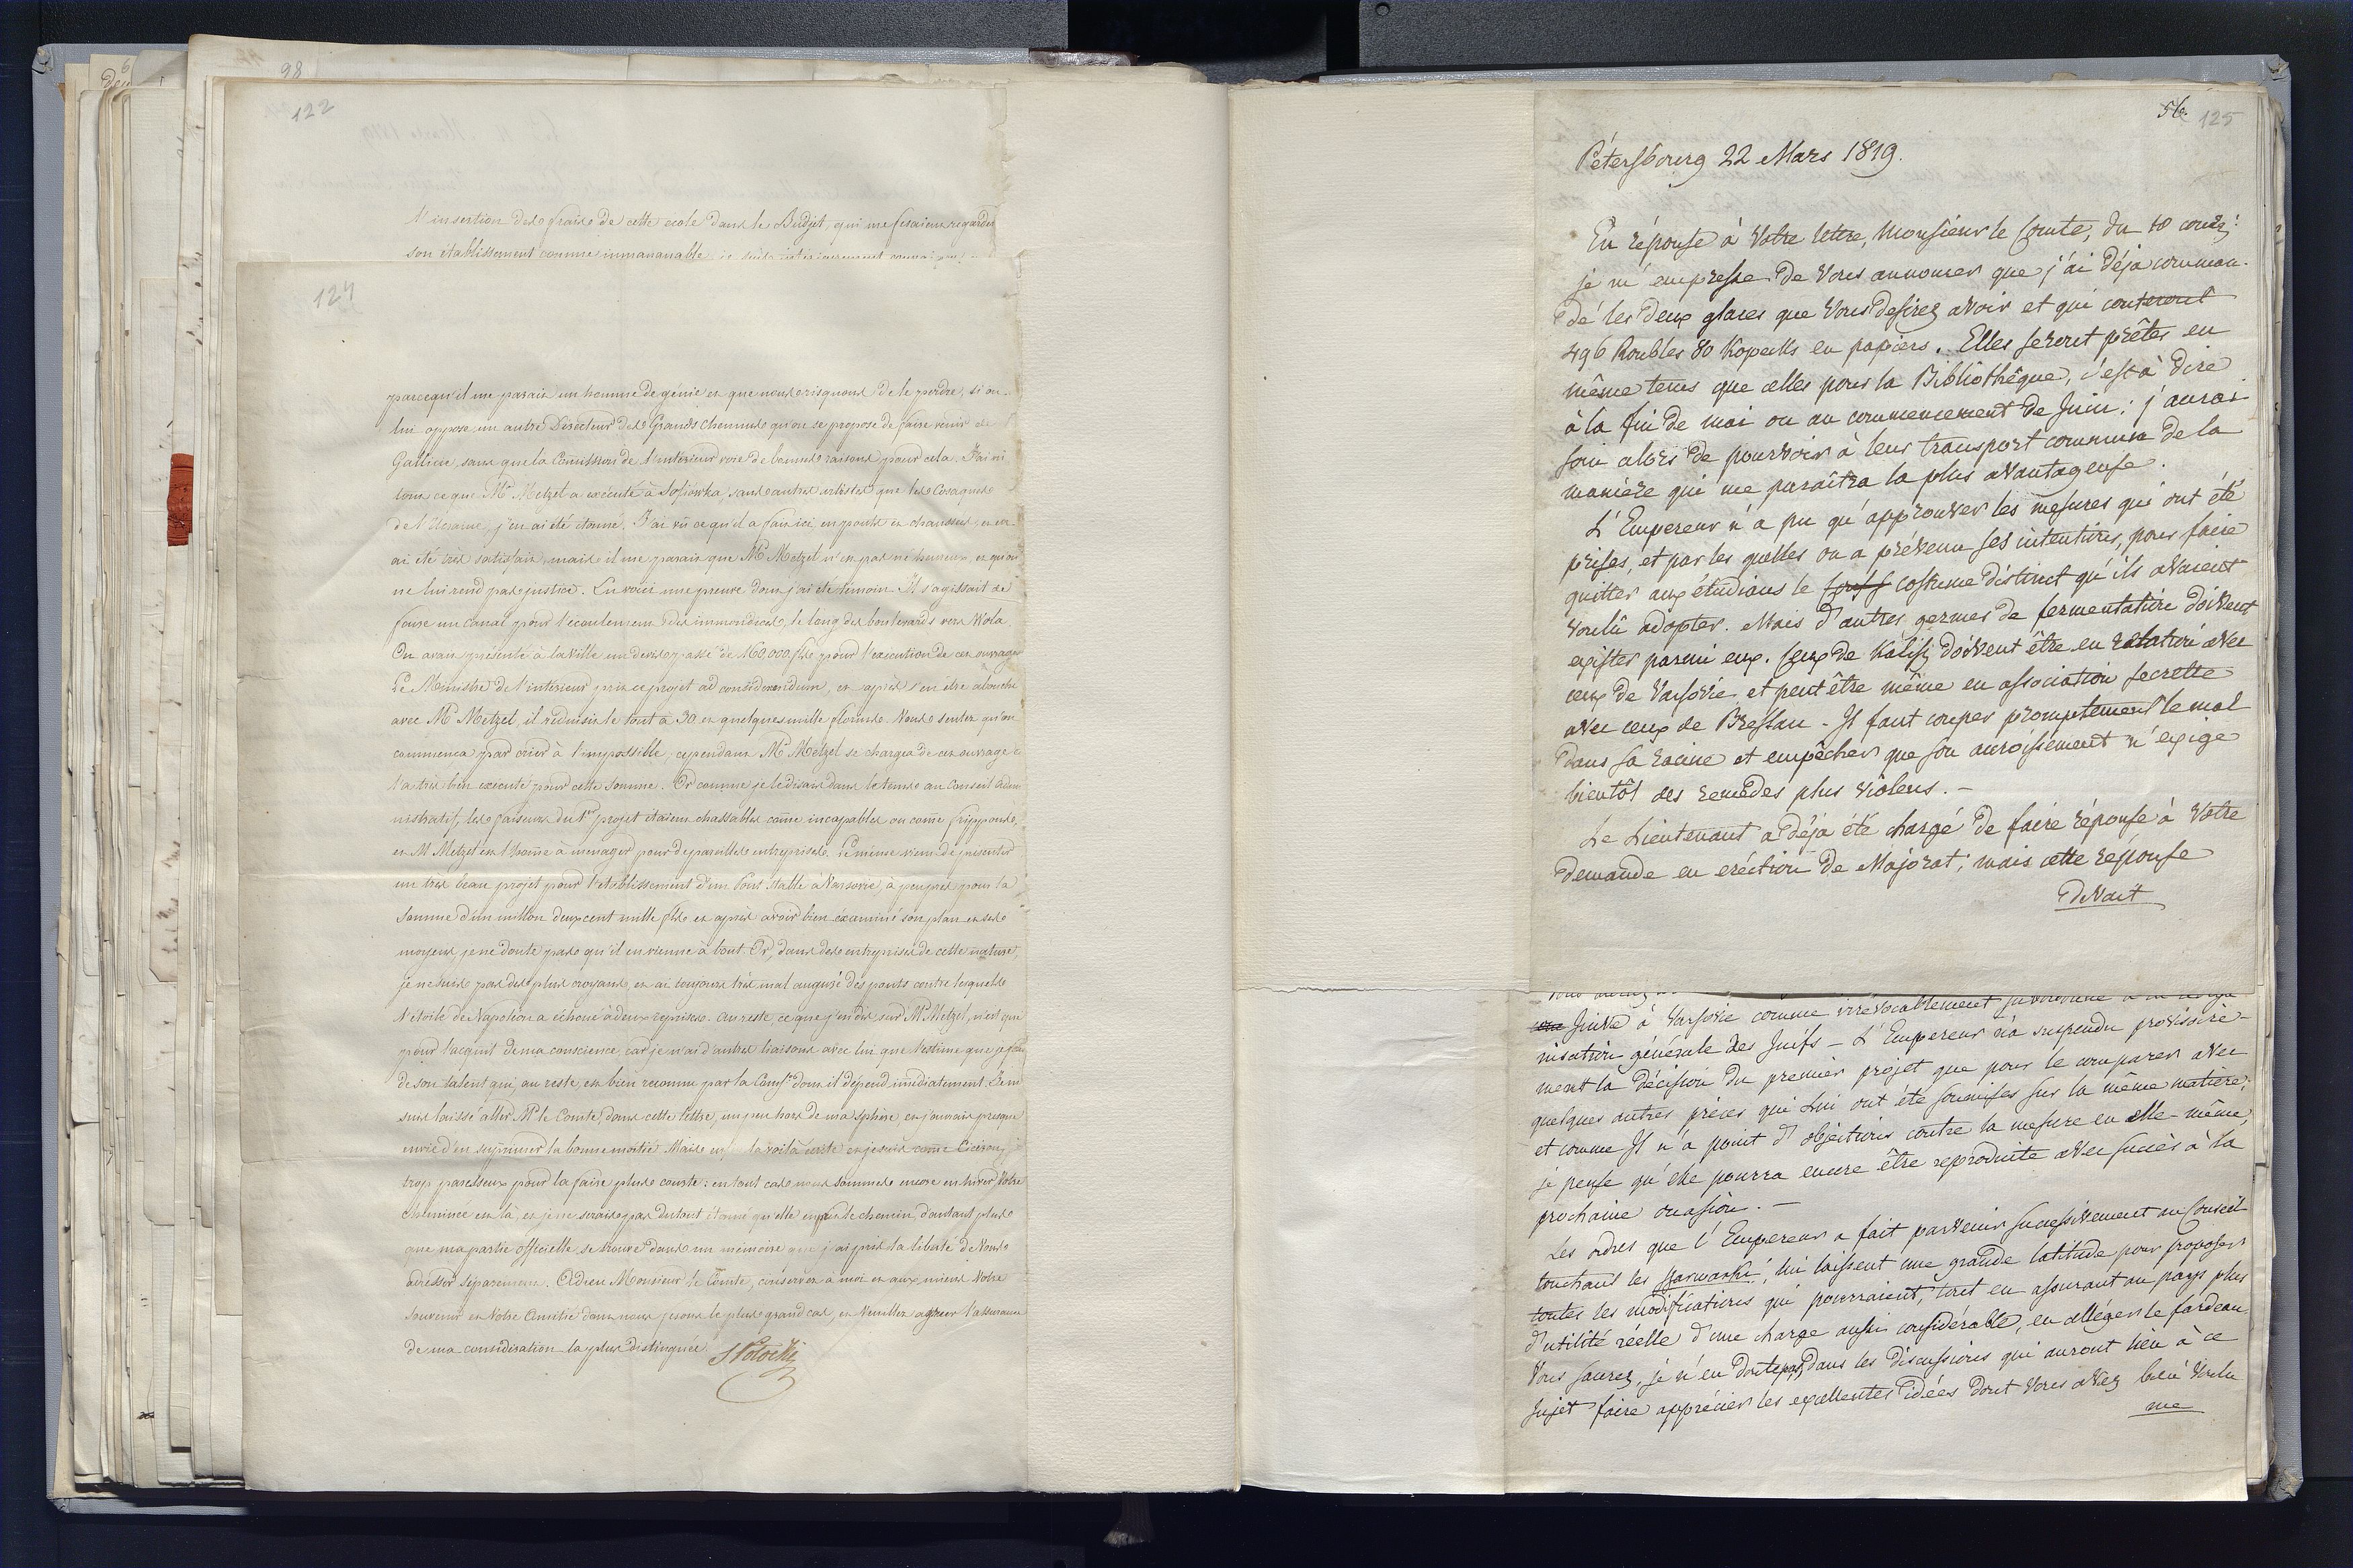 98
122
l'insertion des fraix de cette école dans le Budjet, qui me fesaient regarder
son établissement comme immanquable
124
parcequ'il me parait un homme de génie et que nous risquons de le perdre, si on
lui oppose un autre Directeur des Grands chemins qu'on se propose de faire venir de
Gallicie, sans que la Comission de l'intérieur voie de bonnes raisons pour cela. J'ai vu
tout ce que Mr Metzel a exécuté à Sofiówka, sans autres artistes que les Cosaques
de l'Ucraine, j'en ai été étonné. J'ai vû ce qu'il a fait ici, en ponts et chaussées, et en
ai été très satisfait, mais il me parait que Mr Metzel n'est pas né heureux et qu'on
ne lui rend pas justice. En voici une preuve dont j'ai été témoin. Il s'agissait de
faire un canal pour l'écoulement des immondices, le long des boulevards vers Wola.
On avait présenté à la ville un devis passé de 160,000 fls pour l'exécution de cet ouvrage
Le Ministre de l'intérieur prit ce projet ad considerandum, et après s'en être abouché
avec Mr Metzel, il réduisit le tout à 30 et quelques mille florins. Vous sentez qu'on
commença par crier à l'impossible, cependant Mr Metzel se chargea de cet ouvrage et
l'a très bien exécuté pour cette somme. Or comme je le disais dans le tems au Conseil Admi
nistratif, les faiseurs du 1er projet étaient chassables come incapables ou come frippons,
et M Metzel est l'home à ménager pour de pareilles entreprises. Le même vient de présenter
un très beau projet pour l'établissement d'un Pont stable à Varsovie, à peuprès pour la
somme d'un million deux cent mille fls et après avoir bien éxaminé son plan et ses
moyens, je ne doute pas qu'il en vienne à bout. Or, dans des entreprises de cette nature,
je ne suis pas des plus croyans, et ai toujours très mal auguré des ponts contre lesquels
l'étoile de Napoléon a échoué à deux reprises. Au reste, ce que j'en dis sur Mr Metzel, n'est que
pour l'acquit de ma conscience, car je n'ai d'autres liaisons avec lui que l'estime que je fais
de son talent qui, au reste, est bien reconnu par la Comson dont il dépend imédiatement. Je me
suis laissé aller Mr le Comte, dans cette lettre, un peu hors de ma sphère et j'aurais presque
envie d'en supprimer la bonne moitié. Mais la voilà écrite et je suis come Cicéron,
trop paresseux pour la faire plus courte: en tout cas nous sommes encore en hiver, Votre
cheminée est là, et je ne serais pas du tout étonné qu'elle en prit le chemin, d'autant plus
que ma partie officielle se trouve dans un mémoire que j'ai pris la liberté de Vous
adresser séparément. Adieu Monsieur le Comte, conservez à moi et aux miens Votre
souvenir et Votre Amitié dont nous fesons le plus grand cas, et Veuillez agréer l'assurance
de ma considération la plus distinguée. SPotocki
56.
125
Pétersbourg 22 Mars 1819.
En réponse à Votre lettre, Monsieur le Comte, du 10 cour:
je m'empresse de Vous annoncer que j'ai déja comman-
dé les deux glaces que Vous desirez avoir et qui couteront
496 Roubles 80 Kopecks en papiers. Elles seront prêtes en
même tems que celles pour la Bibliothêque, c'est à dire
à la fin de mai ou au commencement de Juin; j'aurai
soin alors de pourvoir à leur transport commun de la
manière qui me paraîtra la plus avantageuse.
L'Empereur n'a pu qu'approuver les mesures qui ont été
prises, et par les quelles on a prévenu ses intentions, pour faire
quitter aux étudians le costume distinct qu'ils avaient
voulû adopter. Mais d'autres germes de fermentation doivent
exister parmi eux. Ceux de Kalisz doivent être en relation avec
ceux de Varsovie et peut être même en association secrette
avec ceux de Breslau. Il faut couper promptement le mal
dans sa racine et empêcher que son accroissement n'exige
bientôt des remèdes plus violens. -
Le Lieutenant a déja été chargé de faire réponse à Votre
demande en eréction de Majorat; mais cette reponse
devait
Juive à Varsovie comme irrévocablement subordonné à la réorga
nisation générale des Juifs - L'Empereur n'a suspendu provisoire-
ment la décision du premier projet que pour le comparer avec
quelques autres pièces qui Lui ont été soumises sur la même matière;
et comme Il n'a point d'objections contre la mesure en elle-même,
je pense qu'elle pourra encore être reproduite avec succès à la
prochaine occasion. -
Les ordres que l'Empereur a fait parvenir successivement au Conseil
touchant les Szarwarki, lui laissent une grande latitude pour proposer
toutes les modifications qui pourraient, tout en assurant au pays plus
d'utilité réelle d'une charge aussi considérable, en alléger le fardeau
Vous saurez, je n'en doute pas, dans les discussions qui auront lieu à ce
sujet faire apprécier les excellentes idées dont Vous avez bien voulu
me